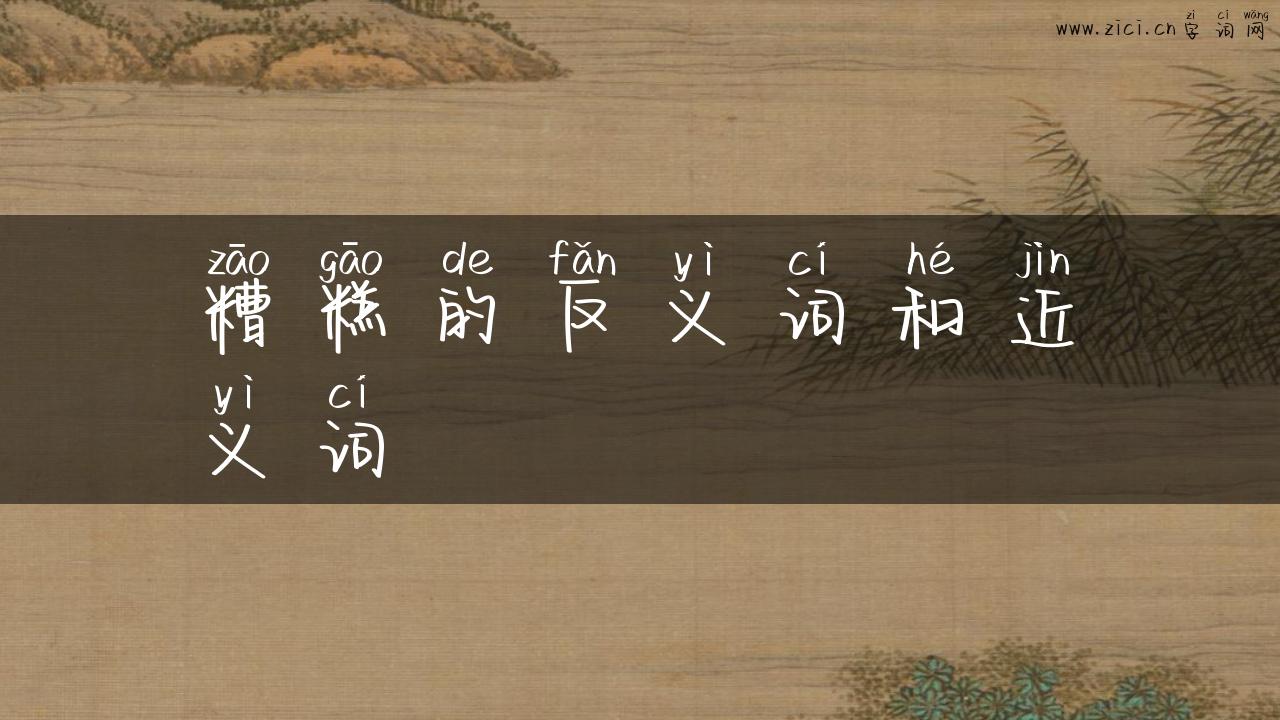 zì cí wǎng
www.zici.cn 字词网
zāo gāo de fǎn yì cí hé jìn
糟糕的反义词和近
yì cí
义词